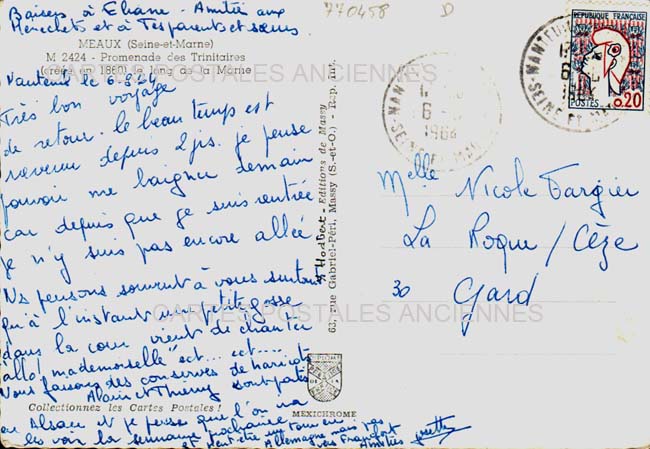 Baisers à Eliane - Amitiés aux
Menechets et à Tes parents et sœurs
MEAUX (Seine-et-Marne)
M 2424 - Promenade des Trinitaires
(créée en 1860) le long de la Marne
Nanteuil le 6.8.64
Très bon voyage
de retour. le beau temps est
revenu depuis 2 jrs. je pense
pouvoir me baigner demain
car depuis que je suis rentrée
je n'y suis pas encore allée
Ns pensons souvent à vous surtout
qu'à l'instant une petite gosse
dans la cour vient de chanter
"allo! mademoiselle" ect... ect....
Nous faisons des conserves de haricots
Alain et Thierry sont partis
Collectionnez les Cartes Postales !
en Alsace et je pense que l'on va
les voir la semaine prochaine
et peut-être un tour en
Allemagne mais pas
vers Francfort
Amitiés Josette
Editions de Massy
63, rue Gabriel-Péri, Massy (S.-et-O.) - Rep. int.
MEXICHROME
770458
D
NANTEUIL
6
1964
SEINE ET MARNE
REPUBLIQUE FRANÇAISE
POSTES
0,20
Melle Nicole Fargier
La Roque / Cèze
30 Gard
CARTES POSTALES ANCIENNES
CARTES POSTALES ANCIENNES